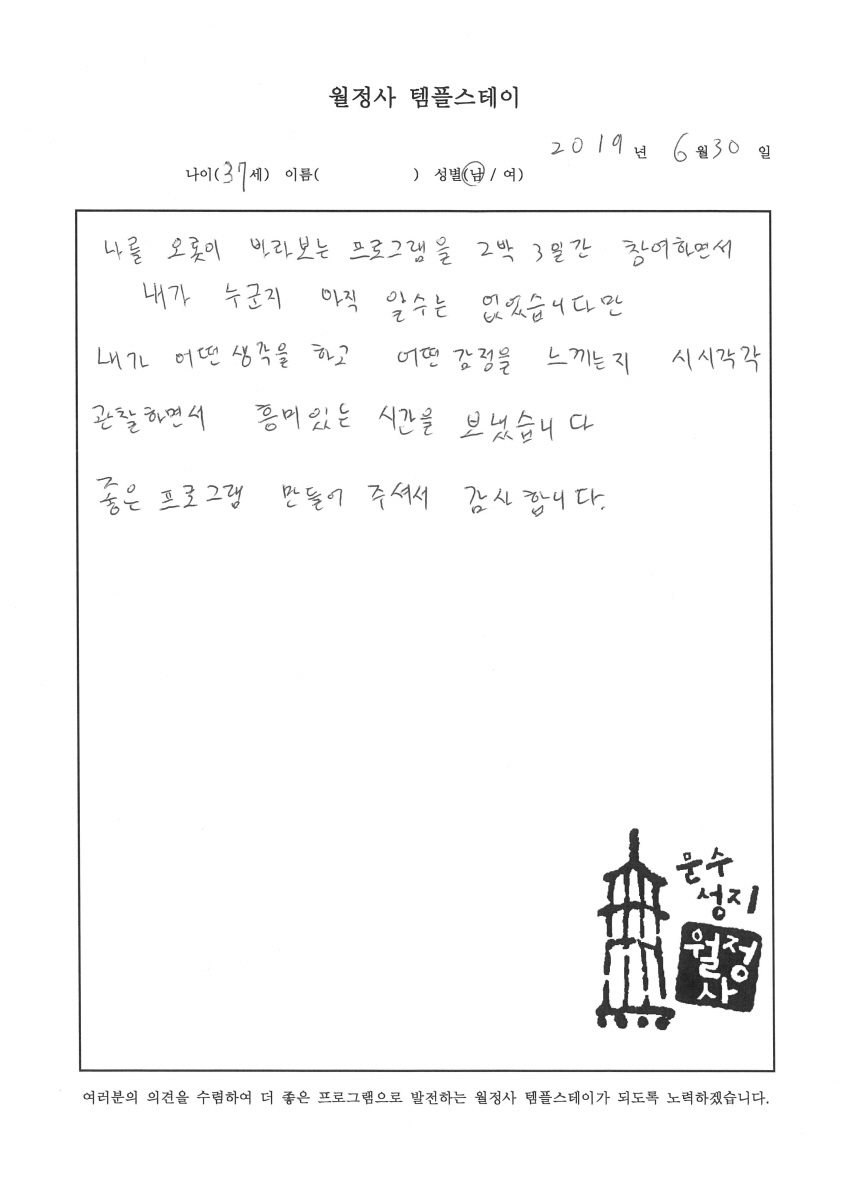 월정사 템플스테이
2019년 6월 30일
나이(37세) 이름( ) 성별(남 / 여)
나를 오롯이 바라보는 프로그램을 2박 3일간 참여하면서
내가 누군지 아직 알수는 없었습니다만
내가 어떤 생각을 하고 어떤 감정을 느끼는지 시시각각
관찰하면서 흥미있는 시간을 보냈습니다
좋은 프로그램 만들어 주셔서 감사합니다.
문수
성지
월정
사
여러분의 의견을 수렴하여 더 좋은 프로그램으로 발전하는 월정사 템플스테이가 되도록 노력하겠습니다.